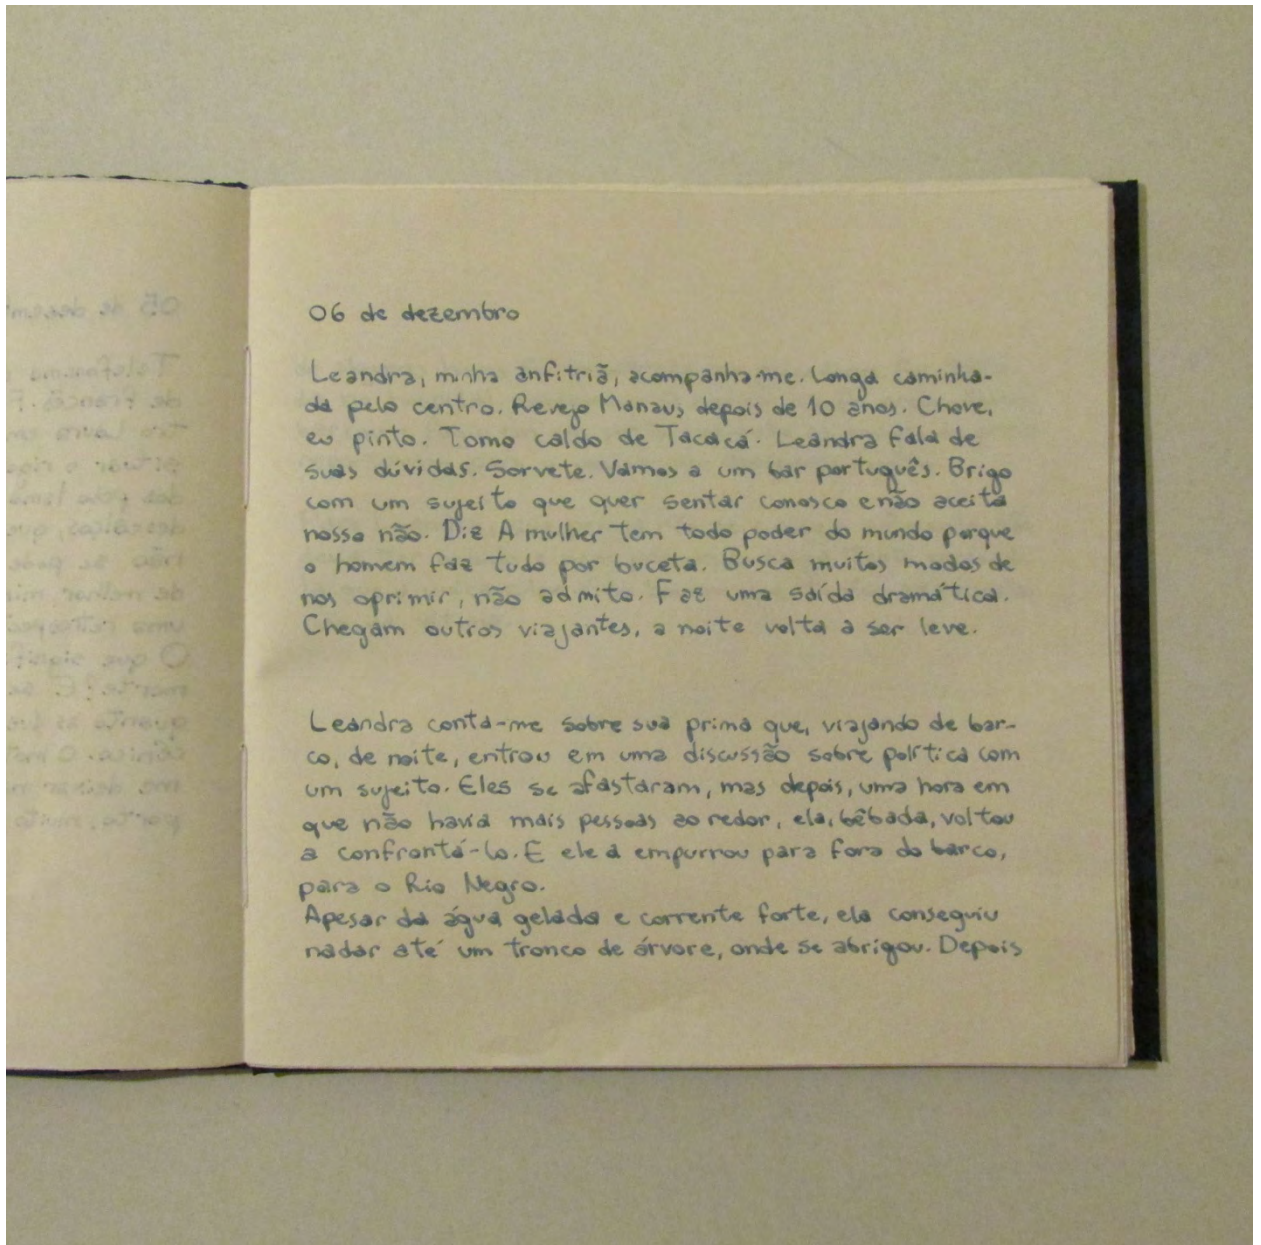 06 de dezembro
Leandra, minha anfitriã, acompanha-me. Longa caminha-
da pelo centro. Revejo Manaus depois de 10 anos. Chove,
eu pinto. Tomo caldo de Tacacá. Leandra fala de
suas dúvidas. Sorvete. Vamos a um bar português. Brigo
com um sujeito que quer sentar conosco e não aceita
nosso não. Diz A mulher tem todo poder do mundo porque
o homem faz tudo por buceta. Busca muitos modos de
nos oprimir, não admito. Faz uma saída dramática.
Chegam outros viajantes, a noite volta a ser leve.
Leandra conta-me sobre sua prima que, viajando de bar-
co, de noite, entrou em uma discussão sobre política com
um sujeito. Eles se afastaram, mas depois, uma hora em
que não havia mais pessoas ao redor, ela, bêbada, voltou
a confrontá-lo. E ele a empurrou para fora do barco,
para o Rio Negro.
Apesar da água gelada e corrente forte, ela conseguiu
nadar até um tronco de árvore, onde se abrigou. Depois